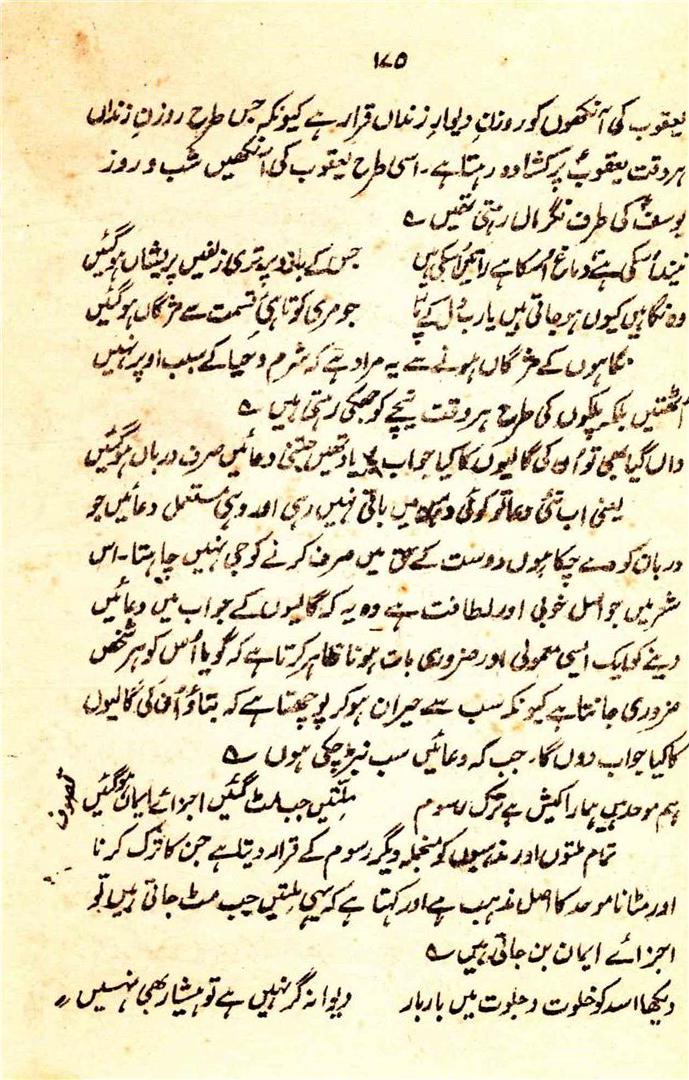 ۱۷۵
یعقوب کی آنکھوں کو روزنِ دیوارِ زنداں قرار ہے کیونکہ جس طرح روزنِ زنداں
ہر وقت یعقوبؑ پر کشادہ رہتا ہے۔ اسی طرح یعقوب کی آنکھیں شب و روز
یوسفؑ کی طرف نگراں رہتی تھیں ؎
نیند اُسکی ہے دماغ اُسکا ہے راتیں اُسکی ہیں جس کے بازو پر تری زلفیں پریشاں ہوگئیں
وہ نگاہیں کیوں ہوجاتی ہیں یارب دل کے پار جو مری کوتاہیِ قسمت سے مژگاں ہوگئیں
نگاہوں کے مژگاں ہونے سے یہ مراد ہے کہ شرم و حیا کے سبب اوپر نہیں
اُٹھتیں بلکہ پلکوں کی طرح ہر وقت نیچے کو جھکی رہتی ہیں ؎
واں گیا بھی تو اُن کی گالیوں کا کیا جواب یاد تھیں جتنی دعائیں صرف درباں ہوگئیں
یعنی اب نئی دعا تو کوئی ذہن میں باقی نہیں رہی اور وہی مستعمل دعائیں جو
دربان کو دے چکا ہوں دوست کے حق میں صرف کرنے کو جی نہیں چاہتا۔ اس
شعر میں جو اصل خوبی اور لطافت ہے وہ یہ کہ گالیوں کے جواب میں دعائیں
دینے کو ایک ایسی معمولی اور ضروری بات ہونا ظاہر کرتا ہے کہ گویا اُس کو ہر شخص
ضروری جانتا ہے کیونکہ سب سے حیران ہوکر پوچھتا ہے کہ بتاؤ اُن کی گالیوں
کا کیا جواب دوں گا۔ جب کہ دعائیں سب نبڑ چکی ہوں ؎
ہم موحد ہیں ہمارا کیش ہے ترک رسوم ملتیں جب مٹ گئیں اجزائے ایماں ہوگئیں
تصوف
تمام ملتوں اور مذہبوں کو منجملہ دیگر رسوم کے قرار دیتا ہے جن کا ترک کرنا
اور مٹانا موحد کا اصل مذہب ہے اور کہتا ہے کہ یہی ملتیں جب مٹ جاتی ہیں تو
اجزائے ایمان بن جاتی ہیں ؎
دیکھا اسد کو خلوت و جلوت میں بار بار دیوانہ گر نہیں ہے تو ہشیار بھی نہیں